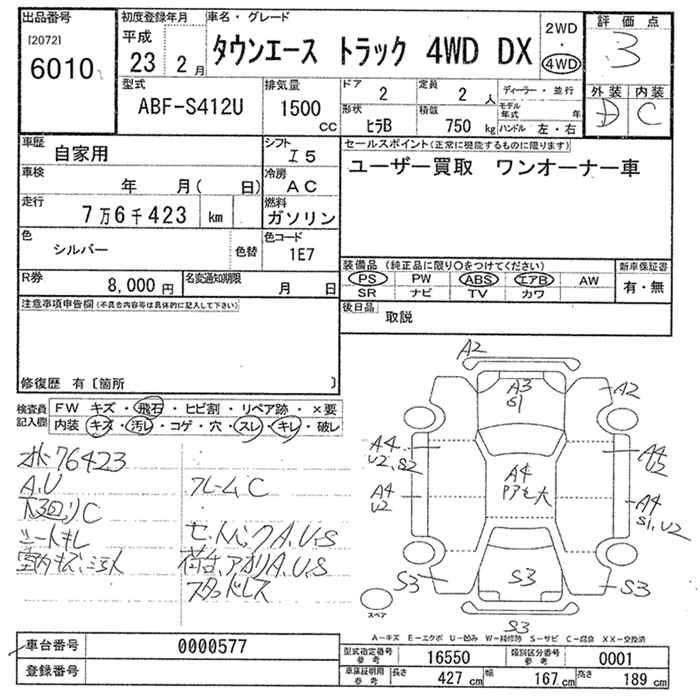 出品番号
[2072]
6010
初度登録年月
平成
23年 2月
車名・グレード
タウンエース トラック 4WD DX
2WD
・
4WD
評価点
3
外装 内装
D C
型式
ABF-S412U
排気量
1500
cc
ドア
2
定員
2 人
形状
ヒラB
積載
750 kg
ディーラー・並行
モデル年式 年
ハンドル 左・右
車歴
自家用
シフト
I5
車検
年 月( 日)
冷房
AC
走行
7万6千423 km
燃料
ガソリン
色
シルバー
色替
色コード
1E7
R券
8,000円
名変通知期限
月 日
セールスポイント(正常に機能するものに限ります)
ユーザー買取 ワンオーナー車
装備品 (純正品に限り○をつけてください)
PS PW ABS エアB AW
SR ナビ TV カワ
新車保証書
有・無
後日品
取説
注意事項申告欄(不具合内容等は具体的に記入して下さい)
修復歴 有〔箇所 〕
検査員記入欄
FW キズ・飛石・ヒビ割・リペア跡・×要
内装 キズ・汚レ・コゲ・穴・スレ・キレ・破レ
76423
A,U
フレームC
下回りC
シートキレ
A,U,S
A,U,S
スタッドレス
A2
A3
S1
A2
A4
U2,S2
A4
U2
A4
U2
A4
A4
S1,U2
S3
S3
S3
S3
スペア
A-キズ E-エクボ U-凹み W-補修跡 S-サビ C-腐食 XX-交換済
車台番号
0000577
登録番号
型式指定番号 参考
16550
類別区分番号 参考
0001
車庫証明用 参考
長さ 427cm 幅 167cm 高さ 189cm